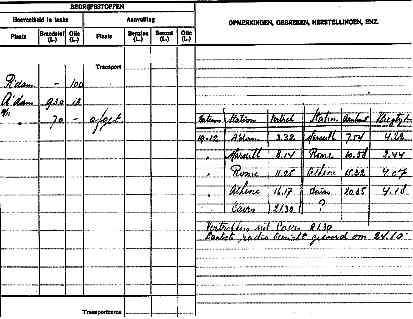 BEDRIJFSSTOFFEN
Hoeveelheid in tanks
Aanvulling
OPMERKINGEN, GEBREKEN, HERSTELLINGEN, ENZ.
Plaats
Brandstof (L.)
Olie (L.)
Plaats
Benzine (L.)
Benzol (L.)
Olie (L.)
Transport
R'dam - 100
A'dam 930 12
70 - afget
Datum Station Vertrek Station Aankomst Vliegtijd
19-12 A'dam 3.32 Marseille 7.54 4.22
" Marseille 8.14 Rome 10.58 2.44
" Rome 11.25 Athene 15.32 4.07
" Athene 16.17 Cairo 20.35 4.18
" Cairo 21.30 ?
Vertrokken uit Cairo 21.30
Laatste radio bericht geseind om 24.10
Transporteeren